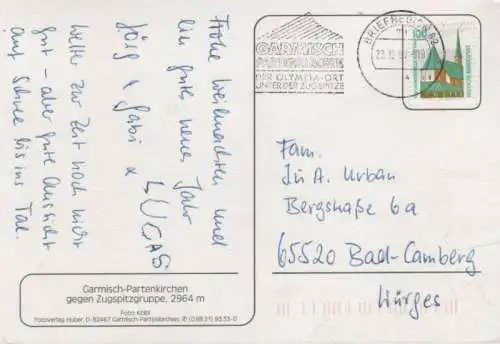 Frohe Weihnachten und
ein gutes neues Jahr
Jörg + Gabi +
LUCAS
Wetter zur Zeit noch nicht
gut – aber gute Aussicht
auf Schnee bis ins Tal.
Garmisch-Partenkirchen
gegen Zugspitzgruppe, 2964 m
Foto: Kößl
Fotoverlag Huber, D-82467 Garmisch-Partenkirchen, ✆ (0 88 21) 93 33-0
GARMISCH
PARTENKIRCHEN
DER OLYMPIA-ORT
UNTER DER ZUGSPITZE
BRIEFREGION 82
100
Fam.
A. Urban
Bergstraße 6a
65520 Bad-Camberg
Würges